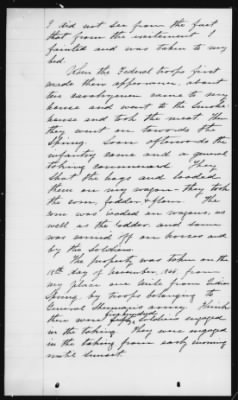 I did not see from the fact
that from the excitement I
fainted and was taken to my
bed.
When the Federal troops first
made their appearance, about
ten cavalrymen came to my
house and went to the smoke
house and took the meat. Then
they went on towards the
Spring. Soon afterwards the
infantry came and a general
taking commenced. They
shot the hogs and loaded
them on my wagon - they took
the corn, fodder & flour. The
corn was loaded on wagons, as
well as the fodder, and some
was carried off on horses and
by the soldiers.
The property was taken on the
18th day of November, 1864, from
my place one mile from Indian
Spring, by troops belonging to
General Sherman's army. I think
there were soldiers engaged
in the taking. They were engaged
in the taking from early morning
until sunset.